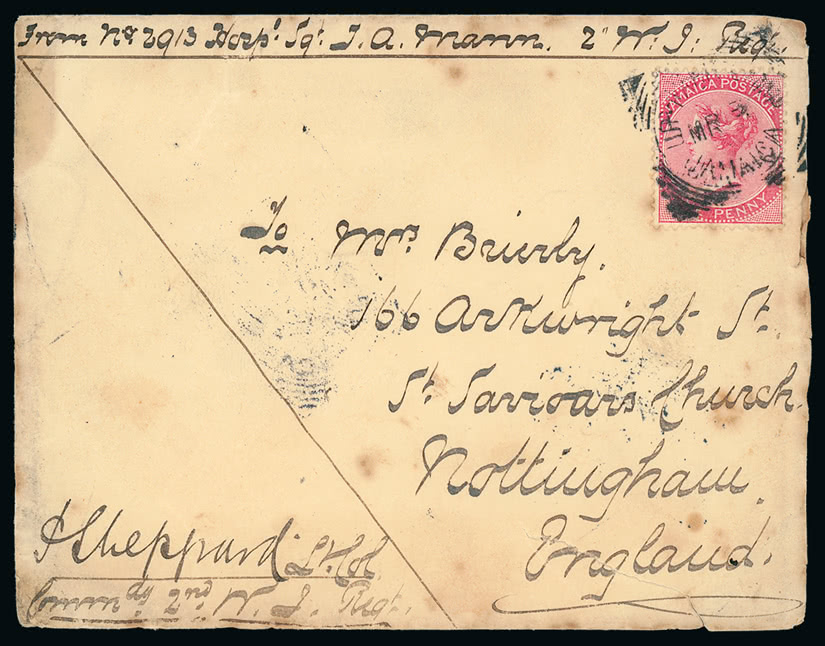 From No 2913 Hospl Sgt J. A. Mann. 2nd W. I. Regt.
JAMAICA POSTAGE
MR
JAMAICA
PENNY
To Mrs Brierly.
166 Arkwright St.
St Saviours Church
Nottingham.
England.
Sheppard Lt. Col.
Commdg 2nd W. I. Regt.